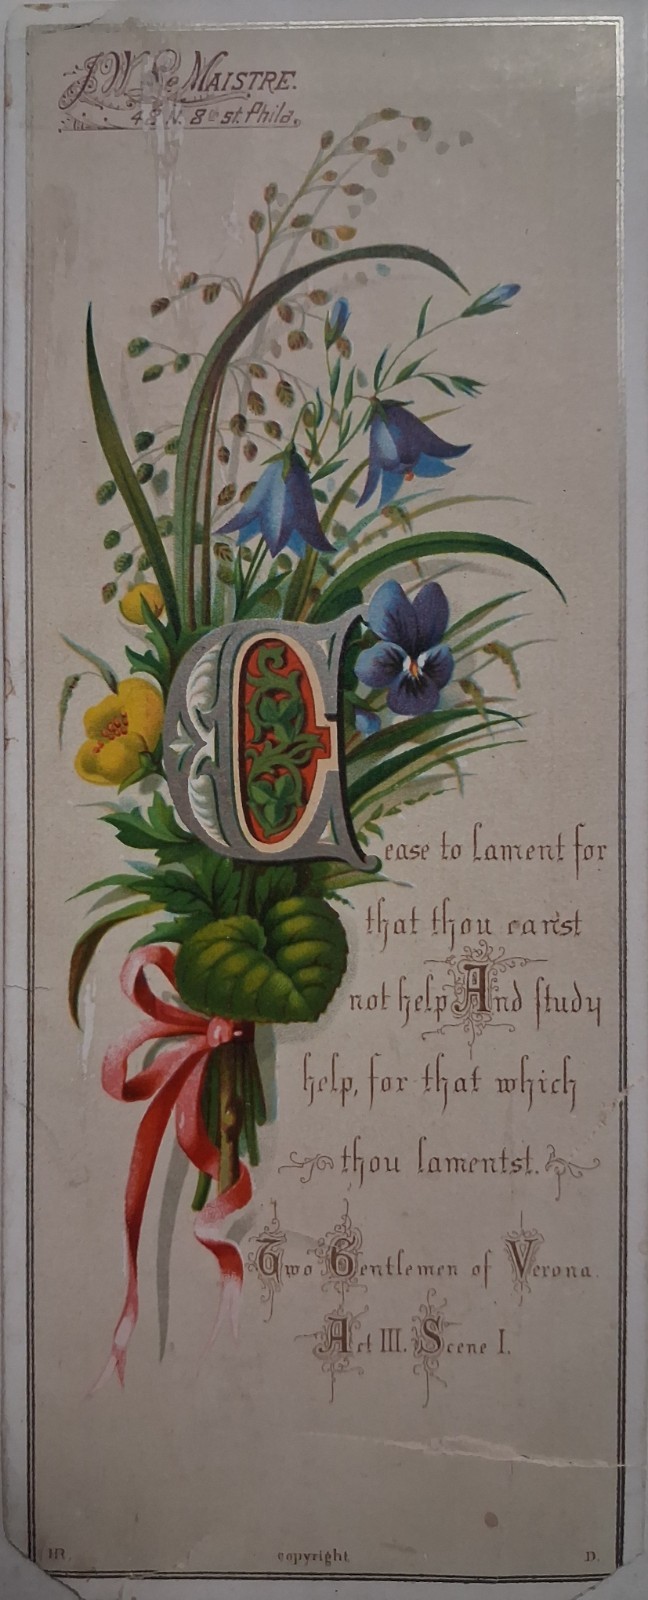 J.W. Le MAISTRE.
48 N. 8th st. Phila.
Cease to lament for
that thou can'st
not help And study
help, for that which
thou lamentst.
Two Gentlemen of Verona.
Act III. Scene I.
HR.
copyright
D.